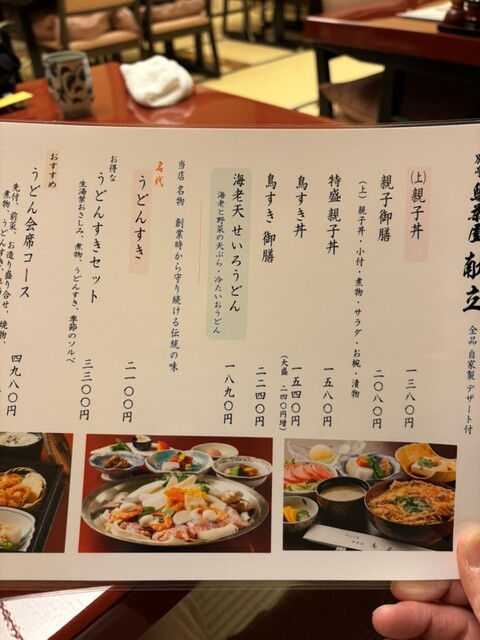 献立
全品 自家製 デザート付
(上)親子丼
一三八〇円
親子御膳
(上)親子丼・小付・煮物・サラダ・お椀・漬物
二〇八〇円
特盛 親子丼
一五八〇円
鳥すき丼
一五四〇円
(大盛 二四〇円増)
鳥すき 御膳
二二四〇円
海老天 せいろうどん
海老と野菜の天ぷら・冷たいおうどん
一八九〇円
当店 名物 創業時から守り続ける伝統の味
名代
うどんすき
二一〇〇円
お得な
うどんすきセット
生湯葉おさしみ、煮物、うどんすき、季節のソルベ
三三〇〇円
おすすめ
うどん会席コース
先付、前菜、お造り盛り合せ、焼物、
四九八〇円